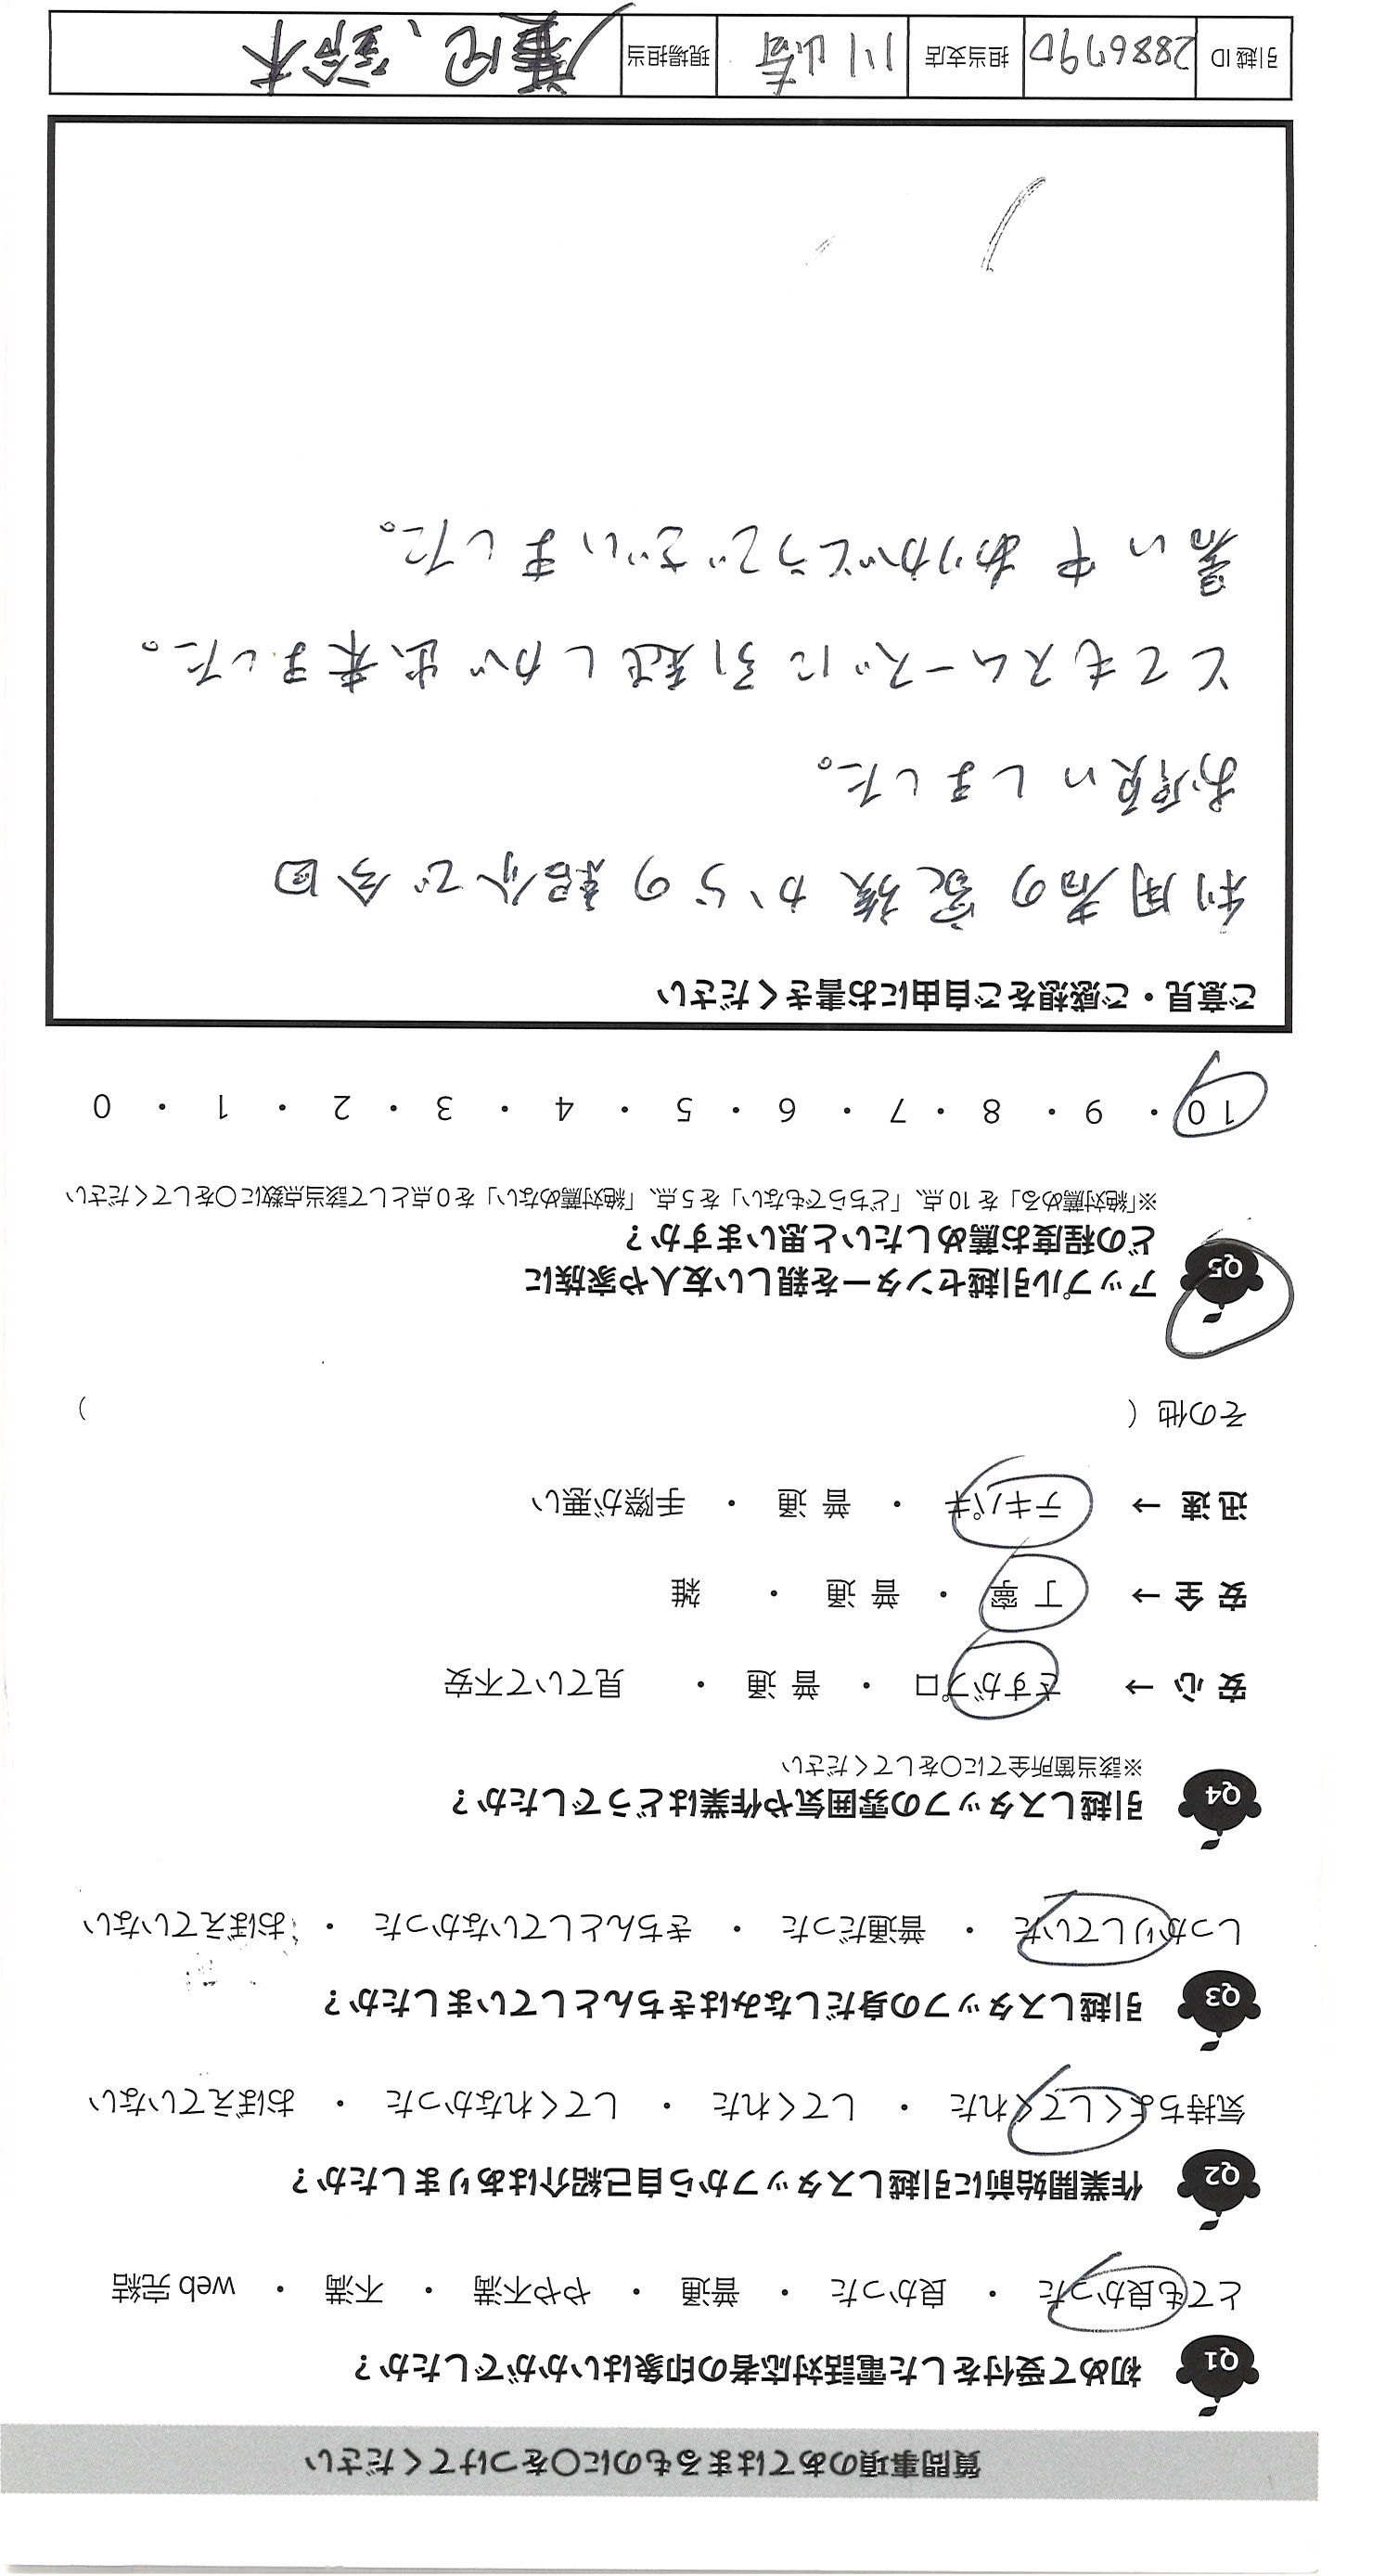 質問事項のあてはまるものに○をつけてください
Q1 初めて受付をした電話対応者の印象はいかがでしたか?
とても良かった ・ 良かった ・ 普通 ・ やや不満 ・ 不満 ・ web 完結
Q2 作業開始前に引越しスタッフから自己紹介はありましたか?
気持ちよくしてくれた ・ してくれた ・ してくれなかった ・ おぼえていない
Q3 引越しスタッフの身だしなみはきちんとしていましたか?
しっかりしていた ・ 普通だった ・ きちんとしていなかった ・ おぼえていない
Q4 引越しスタッフの雰囲気や作業はどうでしたか?
※該当箇所全てに○をしてください
安心 → さすがプロ ・ 普通 ・ 見ていて不安
安全 → 丁寧 ・ 普通 ・ 雑
迅速 → テキパキ ・ 普通 ・ 手際が悪い
その他 ( )
Q5 アップル引越センターを親しい友人や家族に
どの程度お薦めしたいと思いますか?
※「絶対薦める」を10点、「どちらでもない」を5点、「絶対薦めない」を0点として該当点数に○をしてください
10 ・ 9 ・ 8 ・ 7 ・ 6 ・ 5 ・ 4 ・ 3 ・ 2 ・ 1 ・ 0
ご意見・ご感想をご自由にお書きください
利用者の家族からの紹介で今回
お願いしました。
とてもスムーズに引越しが出来ました。
暑い中ありがとうございました。
引越ID 2886790 担当支店 川崎 現場担当 、鈴木